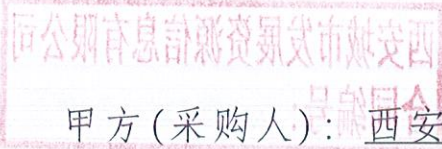 西安城市发展资源信息有限公司
合同编号:
甲方(采购人): 西安